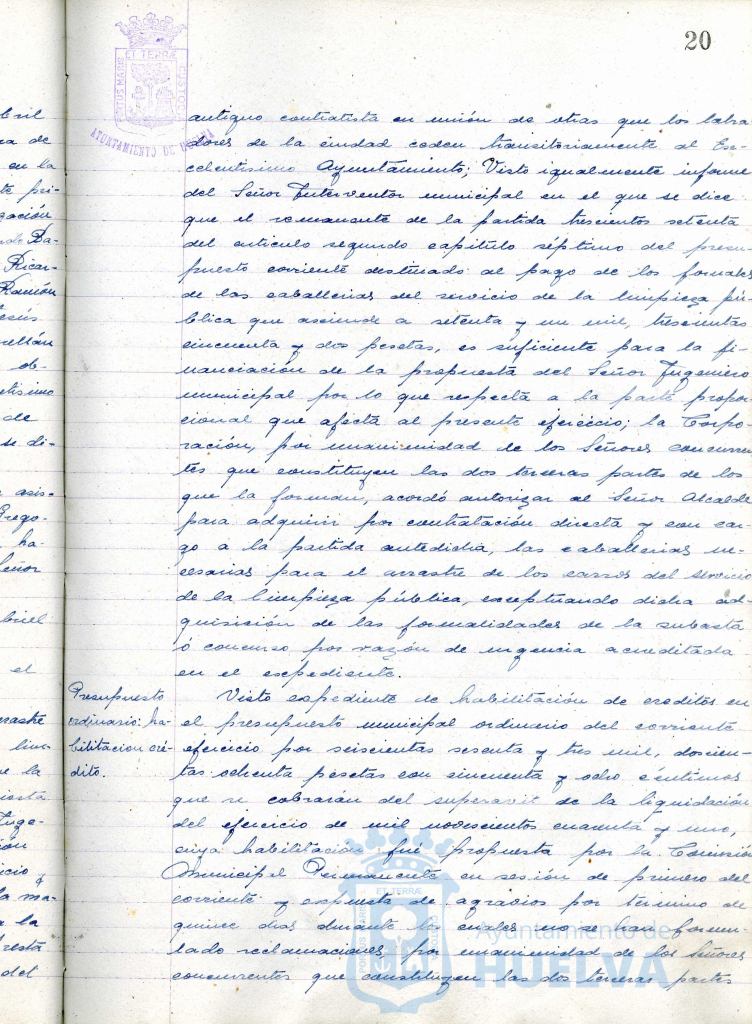 20
PORTUS MARIS ET TERRÆ CUSTODIA
AYUNTAMIENTO DE HUELVA
antiguo contratista en unión de otras que los labra
dores de la ciudad ceden transitoriamente al Ex-
celentísimo Ayuntamiento; Visto igualmente informe
del Señor Interventor municipal en el que se dice
que el remanente de la partida trescientos setenta
del artículo segundo capítulo séptimo del presu
puesto corriente destinado al pago de los jornales
de las caballerias del servicio de la limpieza pú
blica que asciende a setenta y un mil, trescientas
cincuenta y dos pesetas, es suficiente para la fi-
nanciación de la propuesta del Señor Ingeniero
municipal por lo que respecta a la parte propor
cional que afecta al presente ejercicio; la Corpo-
ración, por unanimidad de los Señores concurren
tes que constituyen las dos terceras partes de los
que la forman, acordó autorizar al Señor Alcalde
para adquirir por contratación directa y con car-
go a la partida antedicha, las caballerias ne-
cesarias para el arrastre de los carros del servicio
de la limpieza pública, exceptuando dicha ad-
quisición de las formalidades de la subasta
ó concurso por razón de urgencia acreditada
en el expediente.
Presupuesto
ordinario: ha-
bilitacion cré-
dito.
Visto expediente de habilitación de creditos en
el presupuesto municipal ordinario del corriente
ejercicio por seiscientas sesenta y tres mil, doscien-
tas ochenta pesetas con cincuenta y ocho céntimos
que se cobrarán del superavit de la liquidación
del ejercicio de mil novescientos cuarenta y uno,
cuya habilitación fué propuesta por la Comisión
Municipal Permanente en sesión de primero del
corriente y expuesta de agravios por término de
quince dias durante los cuales no se han formu-
lado reclamaciones, por unanimidad de los Señores
concurrentes que constituyen las dos terceras partes
Ayuntamiento de
HUELVA